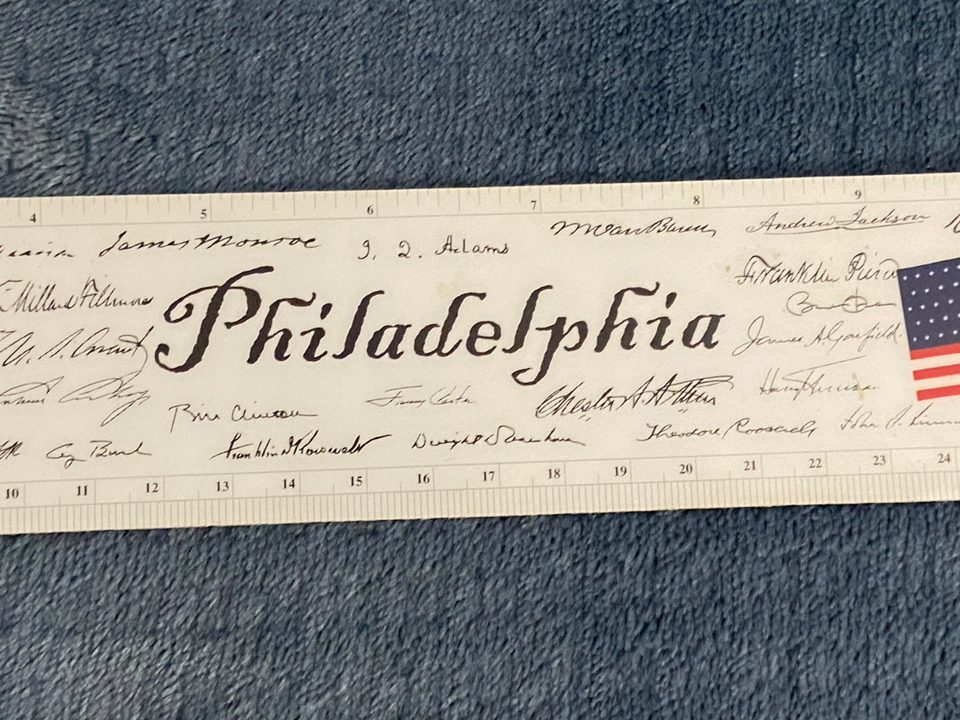 4 5 6 7 8 9
James Monroe J. Q. Adams M Van Buren Andrew Jackson
Millard Fillmore Franklin Pierce
Philadelphia
U. S. Grant James A Garfield
Bill Clinton Jimmy Carter Chester A Arthur Harry Truman
G Bush Franklin D Roosevelt Dwight D Eisenhower Theodore Roosevelt
10 11 12 13 14 15 16 17 18 19 20 21 22 23 24